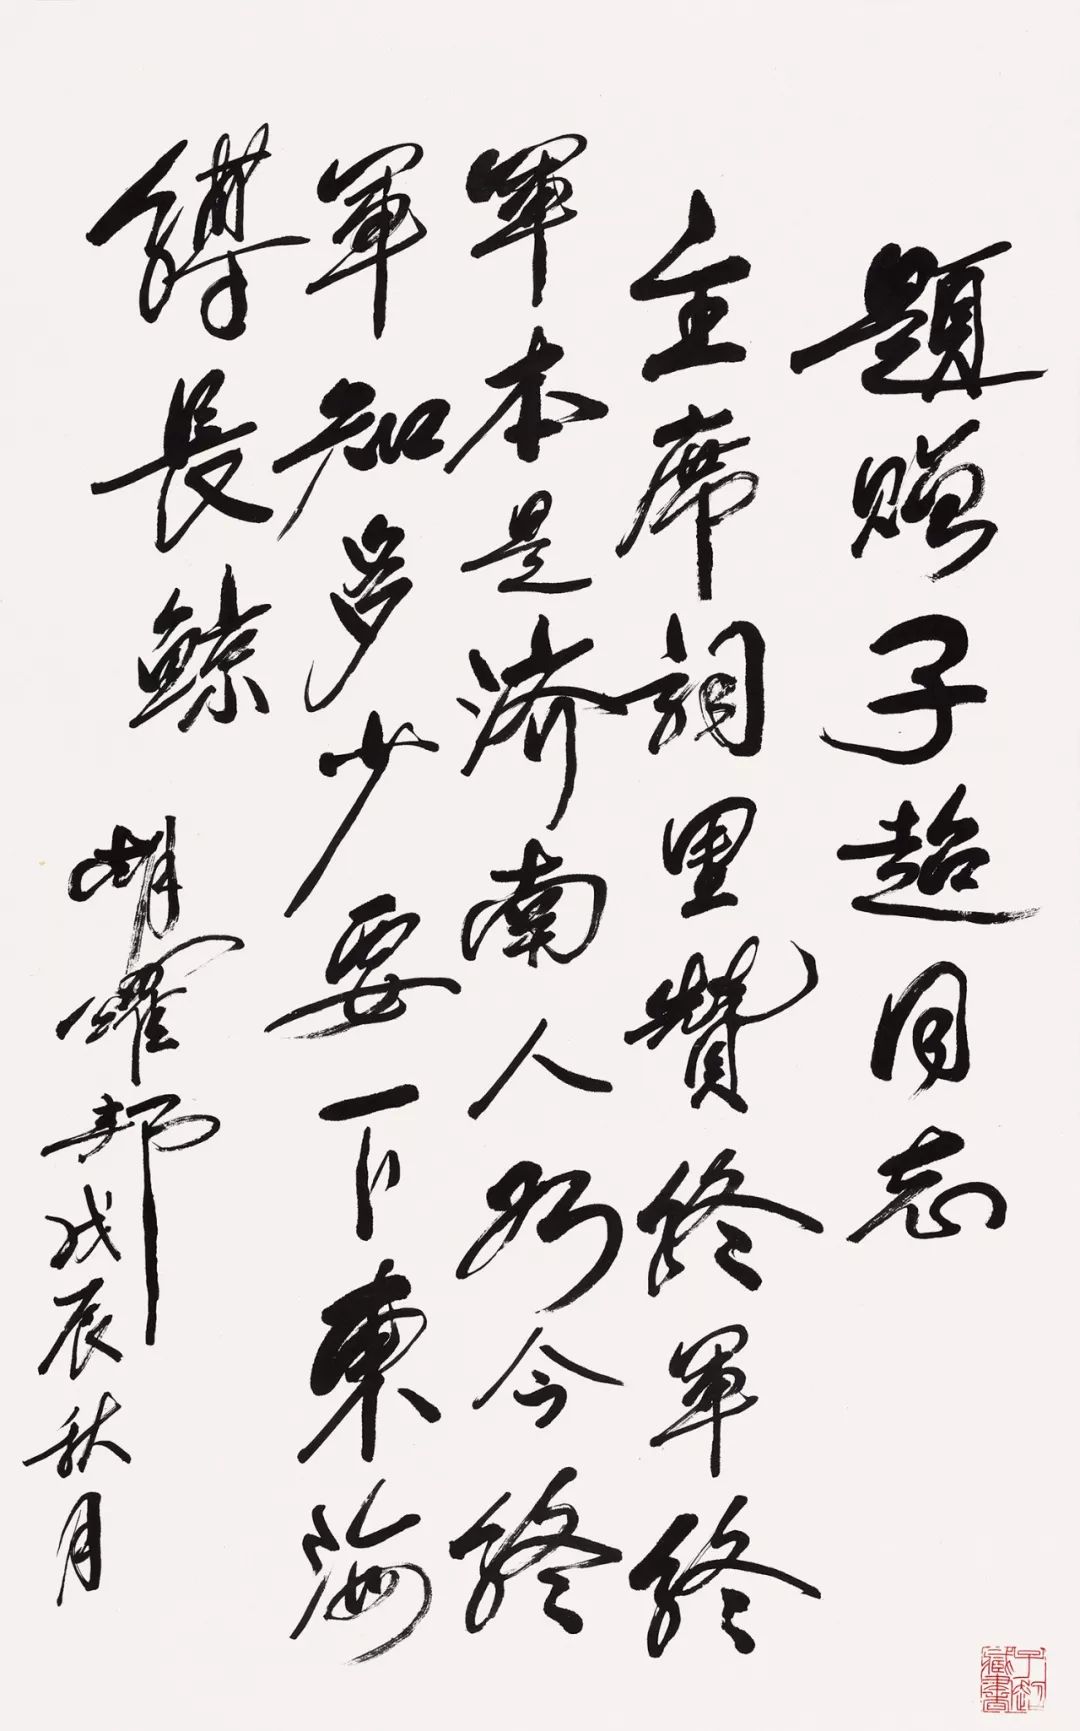 題贈子超同志
主席詞里贊終軍終
軍本是濟南人如今終
軍知多少要下東海
縛長鯨
胡耀邦戊辰秋月
子超藏書